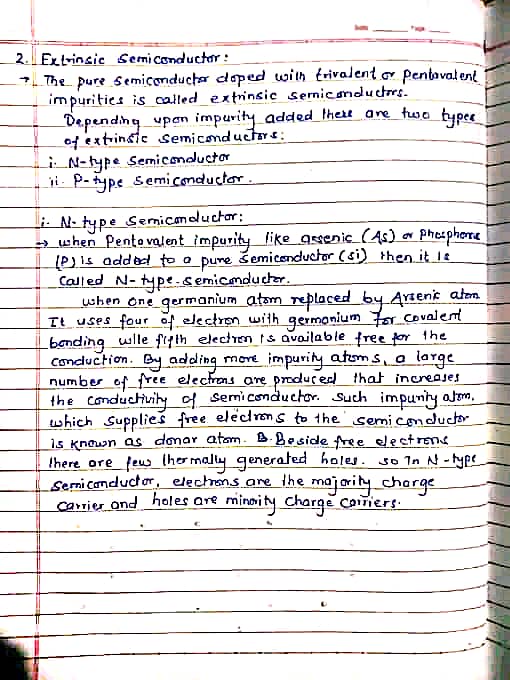 2. Extrinsic Semiconductor:
→ The pure semiconductor doped with trivalent or pentavalent
impurities is called extrinsic semiconductors.
Depending upon impurity added there are two types
of extrinsic semiconductors:
i. N-type Semiconductor
ii. P-type Semiconductor.
i. N-type Semiconductor:
→ when Pentavalent impurity like arsenic (As) or Phosphorus
(P) is added to a pure semiconductor (Si) then it is
called N-type-semiconductor.
when one germanium atom replaced by Arsenic atom
It uses four of electron with germonium for covalent
bonding wile fifth electron is available free for the
conduction. By adding more impurity atoms, a large
number of free electrons are produced that increases
the conductivity of semiconductor. Such impurity atom,
which supplies free electrons to the semiconductor
is known as donar atom. B. Beside free electrons
there are few thermally generated holes. so In N-type
Semiconductor, electrons are the majority charge
carrier and holes are minority charge carriers.